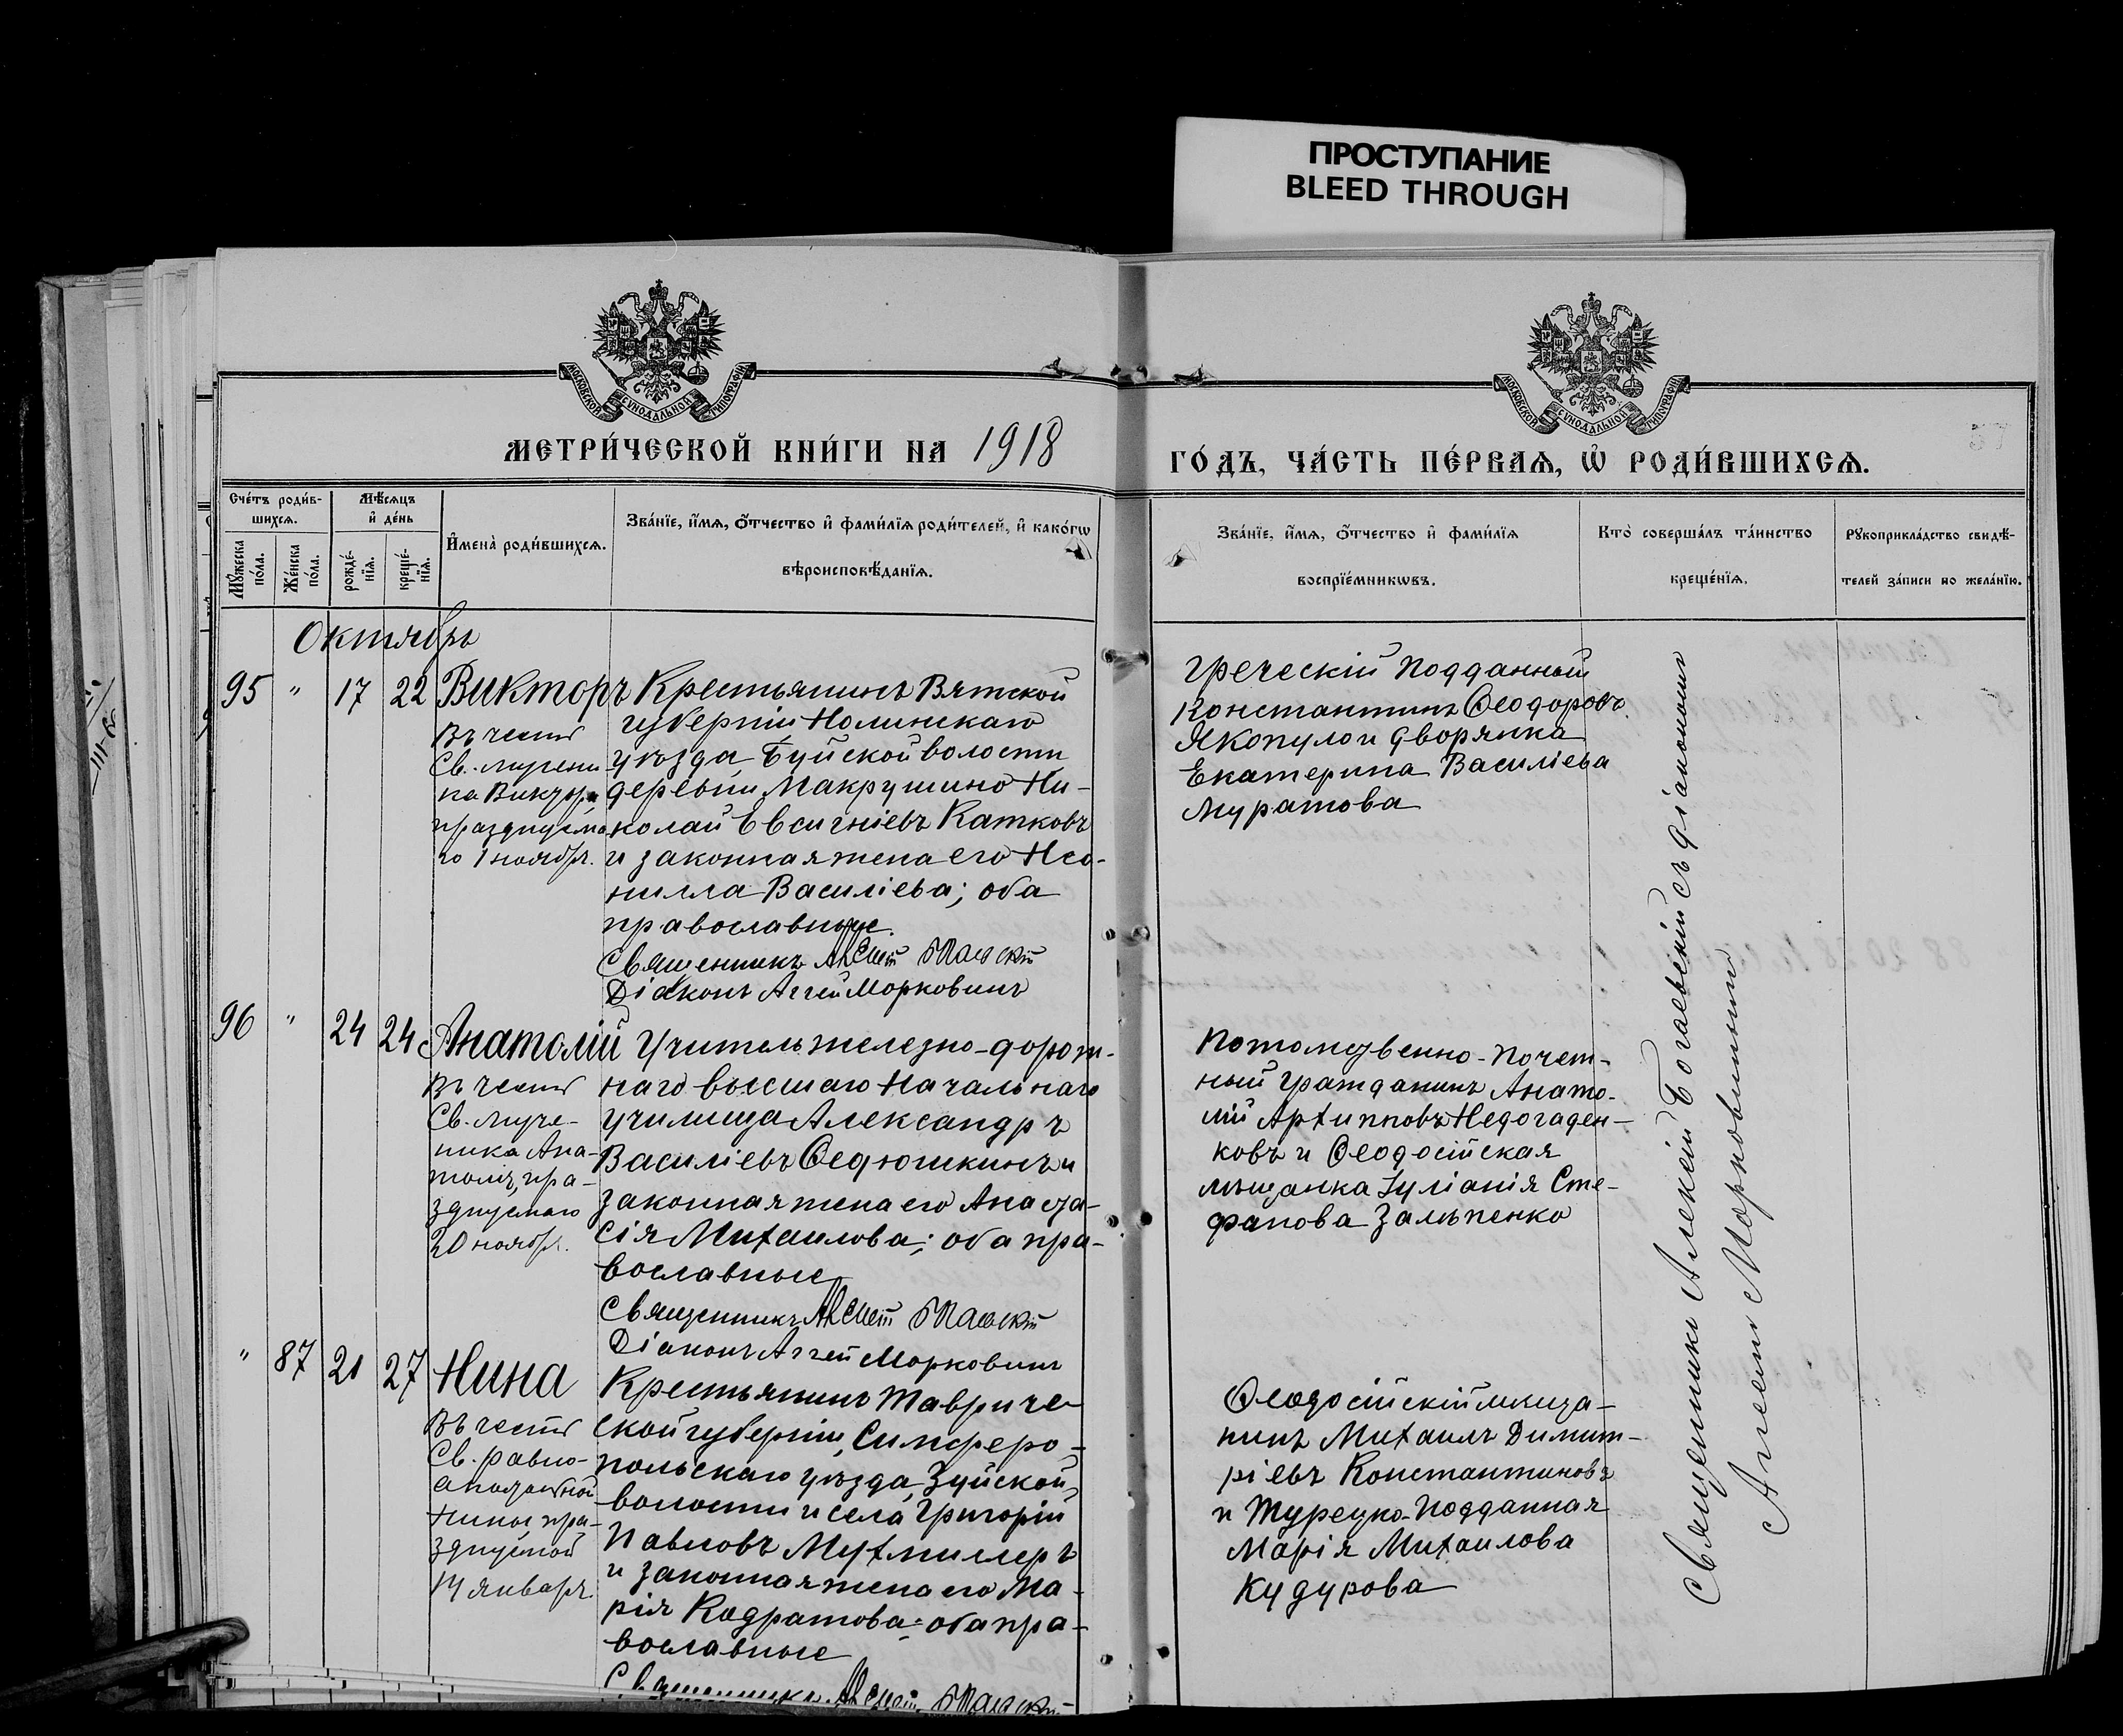 ПРОСТУПАНИЕ
BLEED THROUGH
МОСКОВСКОЙ СѴНОДАЛЬНОЙ ТИПОГРАФІИ
МОСКОВСКОЙ СѴНОДАЛЬНОЙ ТИПОГРАФІИ
МЕТРИ́ЧЕСКОЙ КНИ́ГИ НА 1918
ГО́ДЪ, ЧА́СТЬ ПЕ́РВАѦ, Ѡ҆ РОДИ́ВШИХСѦ.
Сче́тъ роди́в-
шихсѧ.
Мꙋ́жеска
по́ла.
Же́нска
по́ла.
Мѣ́сѧцъ
и҆ де́нь
рожде́-
нїѧ.
креще́-
нїѧ.
И҆мена̀ роди́вшихсѧ.
Зва́нїе, и҆́мѧ, ѻ҆́тчество и҆ фами́лїѧ роди́телей, и҆ како́гѡ
вѣроисповѣ́данїѧ.
Зва́нїе, и҆́мѧ, ѻ҆́тчество и҆ фами́лїѧ
воспрїе́мникѡвъ.
Кто̀ соверша́лъ та́инство
креще́нїѧ.
Рꙋкоприкла́дство свидѣ́-
телей за́писи по жела́нїю.
Октябрь
95 " 17 22 Викторъ
Въ честь
Св. мучени-
ка Виктора,
празднуема-
го 1 ноября.
Крестьянинъ Вятской
губерніи Нолинскаго
уѣзда, Буйской волости
деревни Макрушино Ни-
колай Евсигніевъ Катковъ
и законная жена его Нео-
нилла Василіева; оба
православные.
Священникъ
Діаконъ Аггей Морковинъ
Греческій подданный
Константинъ Ѳеодоровъ
Якопуло и дворянка
Екатерина Василіева
Муратова
96 " 24 24 Анатолій
Въ честь
Св. муче-
ника Ана-
толія, пра-
зднуемаго
20 ноября.
Учитель железно-дорож-
наго высшаго Начальнаго
училища Александръ
Василіевъ Ѳедюшкинъ и
законная жена его Анаста-
сія Михаилова; оба пра-
вославные
Священникъ
Діаконъ Аггей Морковинъ
Потомственно-почет-
ный гражданинъ Анато-
лій Архипповъ Недогаден-
ковъ и Ѳеодосійская
мѣщанка Іуліанія Сте-
фанова Зальпенко
" 87 21 27 Нина
Въ честь
Св. равно-
апостольной
Нины, пра-
зднуемой
14 января.
Крестьянинъ Тавриче-
ской губерніи, Симферо-
польскаго уѣзда, Зуйской
волости и села Григорій
Павловъ Мухмиллеръ
и законная жена его Ма-
рія Кодратова; оба пра-
вославные
Священникъ
Ѳеодосійскій мѣща-
нинъ Михаилъ Димит-
ріевъ Константиновъ
и Турецко-подданная
Марія Михаилова
Кудурова
Священникъ Алексій Богаевскій съ діакономъ
Аггеемъ Морковинымъ